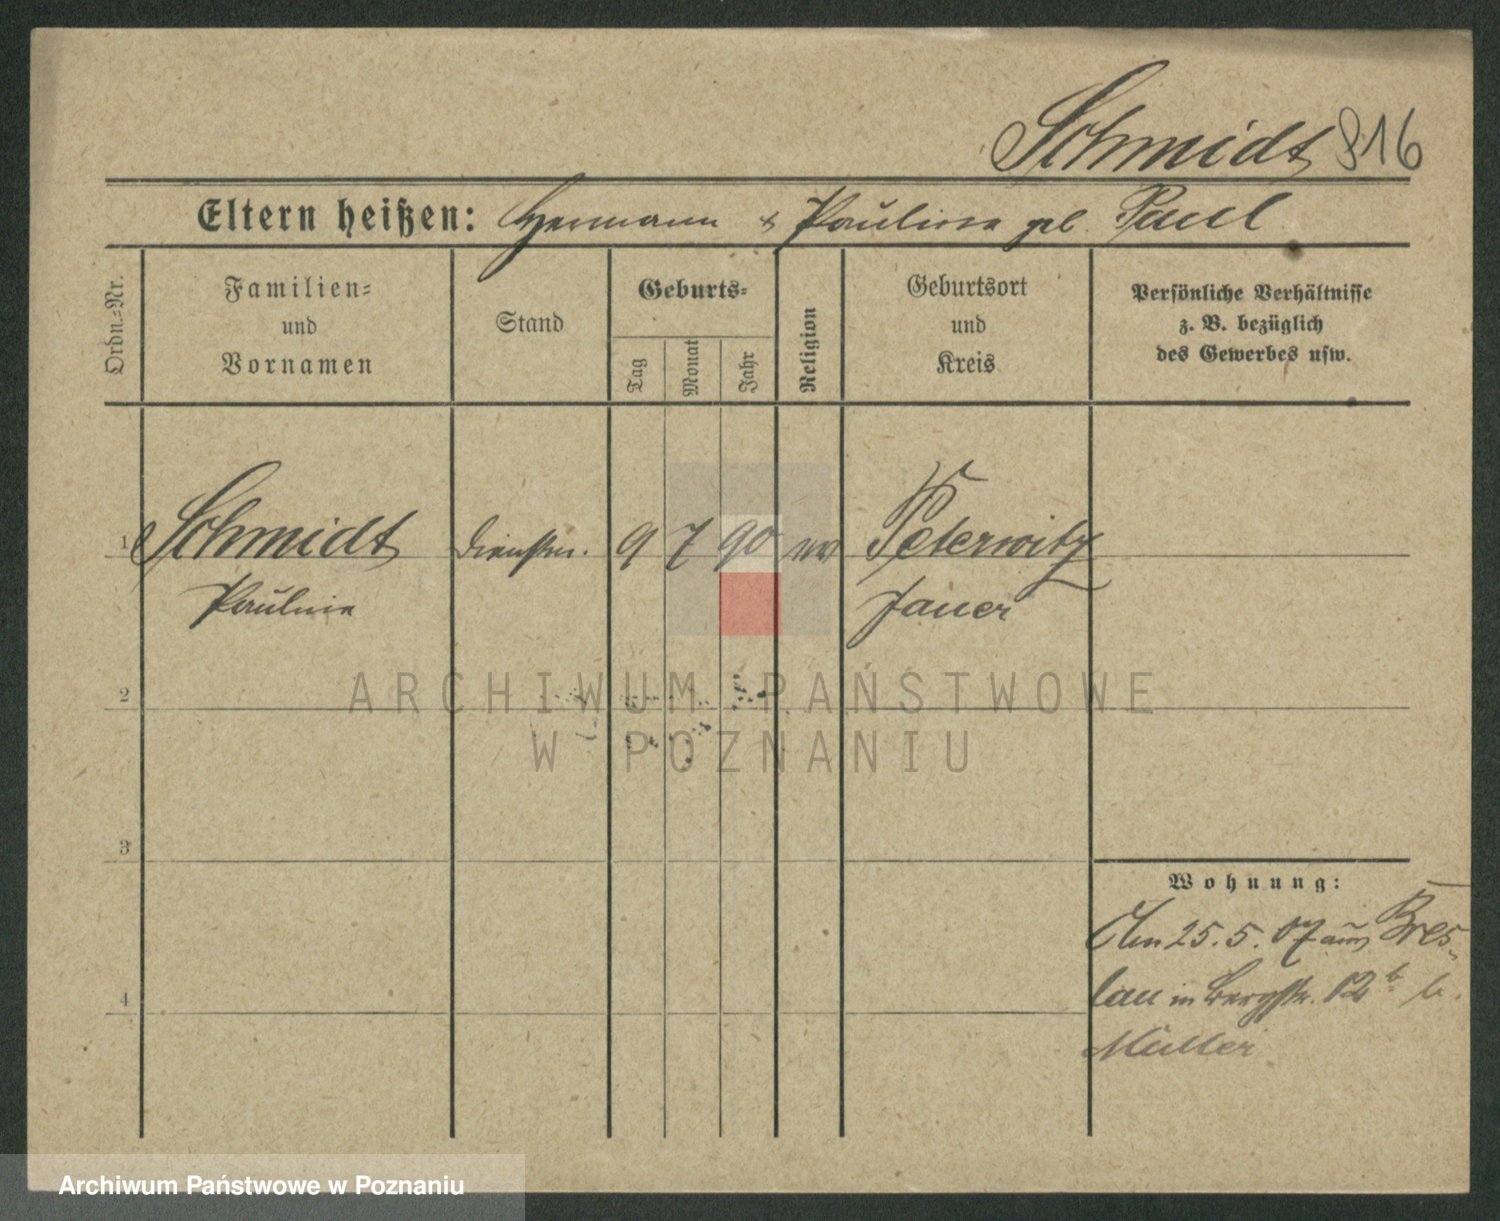 Schmidt 816
Eltern heißen: Hermann & Pauline geb. Paul
Ordn.=Nr.
Familien=
und
Vornamen
Stand
Geburts=
Tag
Monat
Jahr
Religion
Geburtsort
und
Kreis
Persönliche Verhältnisse
z. B. bezüglich
des Gewerbes usw.
1 Schmidt Dienstm. 9 7 90 ev Peterwitz
Pauline Jauer
2
3
4
Wohnung:
Am 25.5.07 aus Bres-
lau in Bergstr. 12b b.
Müller
ARCHIWUM PAŃSTWOWE
W POZNANIU
Archiwum Państwowe w Poznaniu